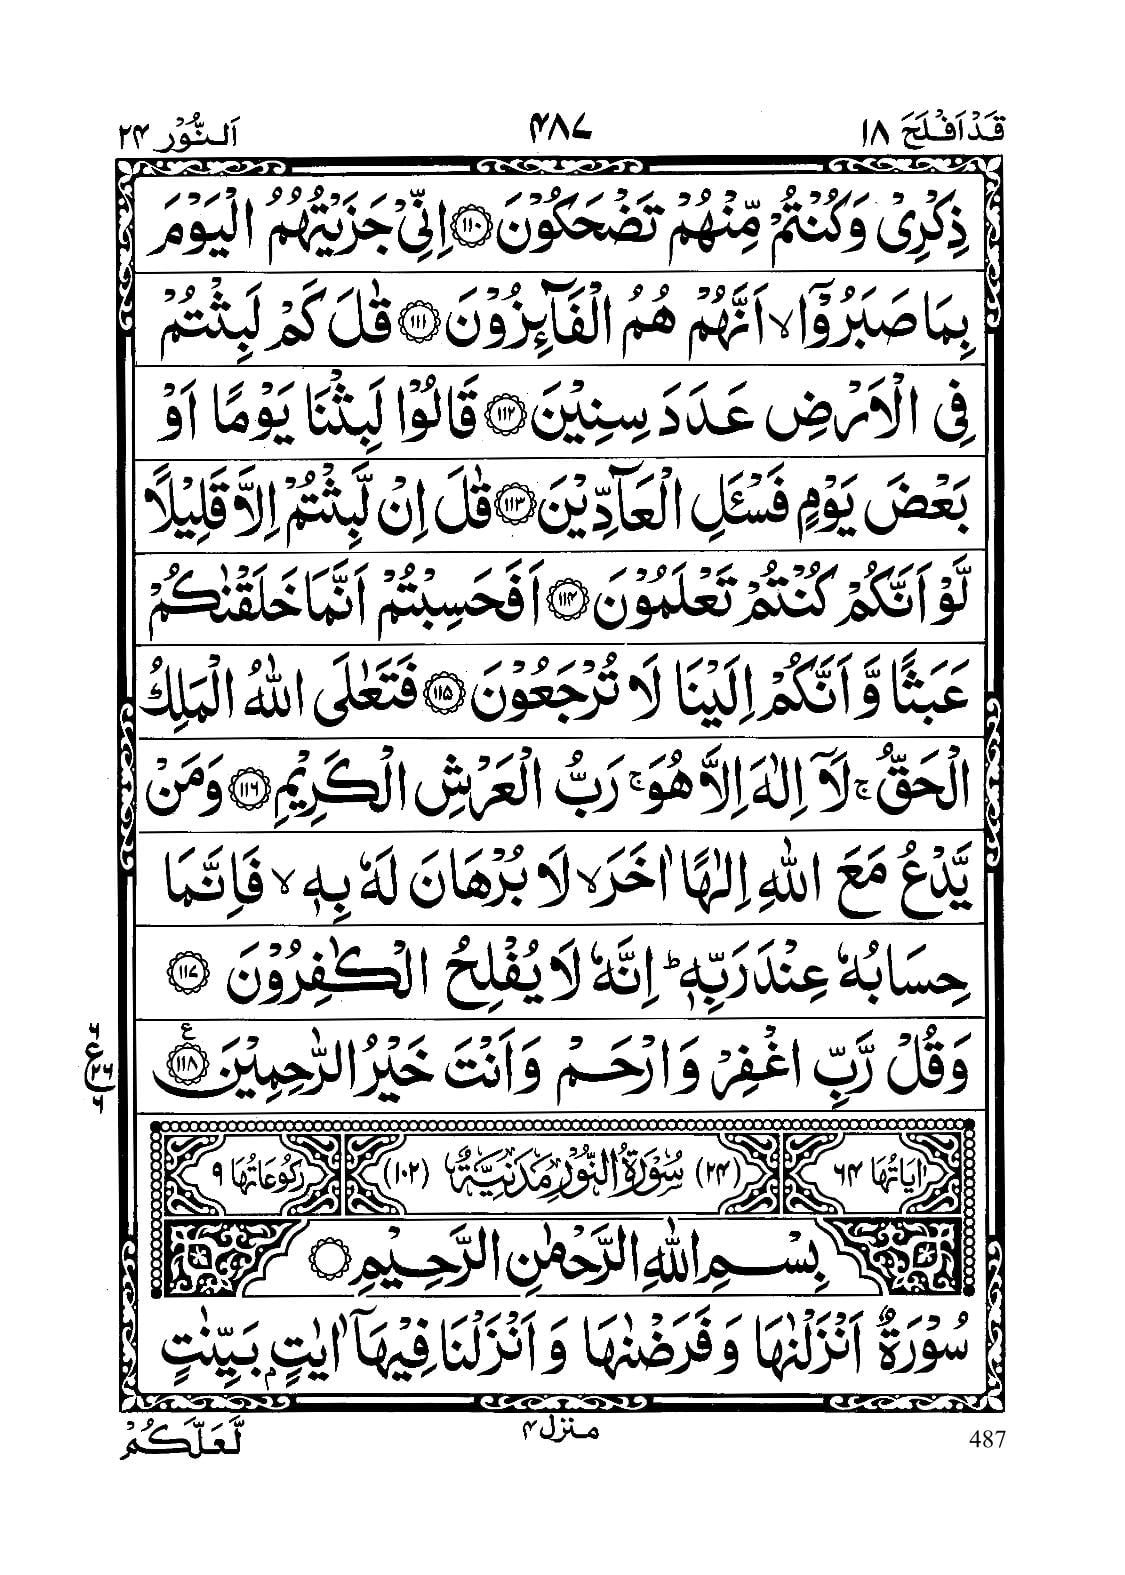 قَدْ اَفْلَحَ ١٨
۴٨٧
اَلنُّوْر ٢۴
ذِكْرِیْ وَكُنْتُمْ مِّنْهُمْ تَضْحَكُوْنَ ۝١١٠ اِنِّیْ جَزَیْتُهُمُ الْیَوْمَ
بِمَا صَبَرُوْۤا ۙ اَنَّهُمْ هُمُ الْفَآىِٕزُوْنَ ۝١١١ قٰلَ كَمْ لَبِثْتُمْ
فِی الْاَرْضِ عَدَدَ سِنِیْنَ ۝١١٢ قَالُوْا لَبِثْنَا یَوْمًا اَوْ
بَعْضَ یَوْمٍ فَسْـَٔلِ الْعَآدِّیْنَ ۝١١٣ قٰلَ اِنْ لَّبِثْتُمْ اِلَّا قَلِیْلًا
لَّوْ اَنَّكُمْ كُنْتُمْ تَعْلَمُوْنَ ۝١١۴ اَفَحَسِبْتُمْ اَنَّمَا خَلَقْنٰكُمْ
عَبَثًا وَّ اَنَّكُمْ اِلَیْنَا لَا تُرْجَعُوْنَ ۝١١۵ فَتَعٰلَی اللّٰهُ الْمَلِكُ
الْحَقُّ ۚ لَاۤ اِلٰهَ اِلَّا هُوَ ۚ رَبُّ الْعَرْشِ الْكَرِیْمِ ۝١١۶ وَمَنْ
یَّدْعُ مَعَ اللّٰهِ اِلٰهًا اٰخَرَ ۙ لَا بُرْهَانَ لَهٗ بِهٖ ۙ فَاِنَّمَا
حِسَابُهٗ عِنْدَ رَبِّهٖ ؕ اِنَّهٗ لَا یُفْلِحُ الْكٰفِرُوْنَ ۝١١٧
وَقُلْ رَّبِّ اغْفِرْ وَارْحَمْ وَاَنْتَ خَیْرُ الرّٰحِمِیْنَ ۝١١٨ ع
۶
ع
٢۶
۶
اٰیَاتُهَا ۶۴
(٢۴) سُوْرَةُ النُّوْرِ مَدَنِیَّةٌ (١٠٢)
رُكُوْعَاتُهَا ٩
بِسْمِ اللّٰهِ الرَّحْمٰنِ الرَّحِیْمِ ۝
سُوْرَةٌ اَنْزَلْنٰهَا وَ فَرَضْنٰهَا وَ اَنْزَلْنَا فِیْهَاۤ اٰیٰتٍۭ بَیِّنٰتٍ
لَّعَلَّكُمْ
منزل ۴
487